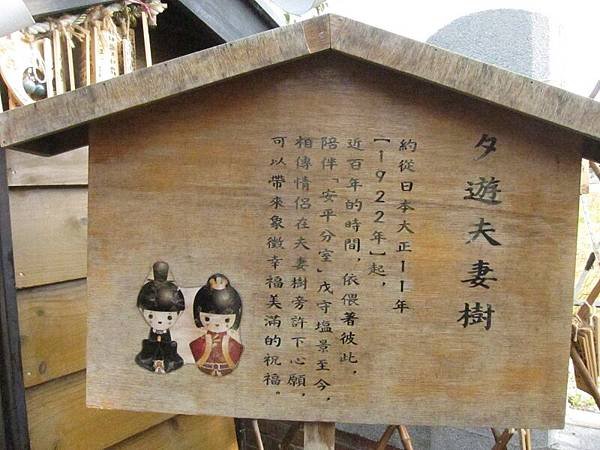 夕遊夫妻樹
約從日本大正11年
【1922年】起，
近百年的時間，依偎著彼此，
陪伴「安平分室」戍守塩景至今，
相傳情侶在夫妻樹旁許下心願，
可以帶來象徵幸福美滿的祝福。